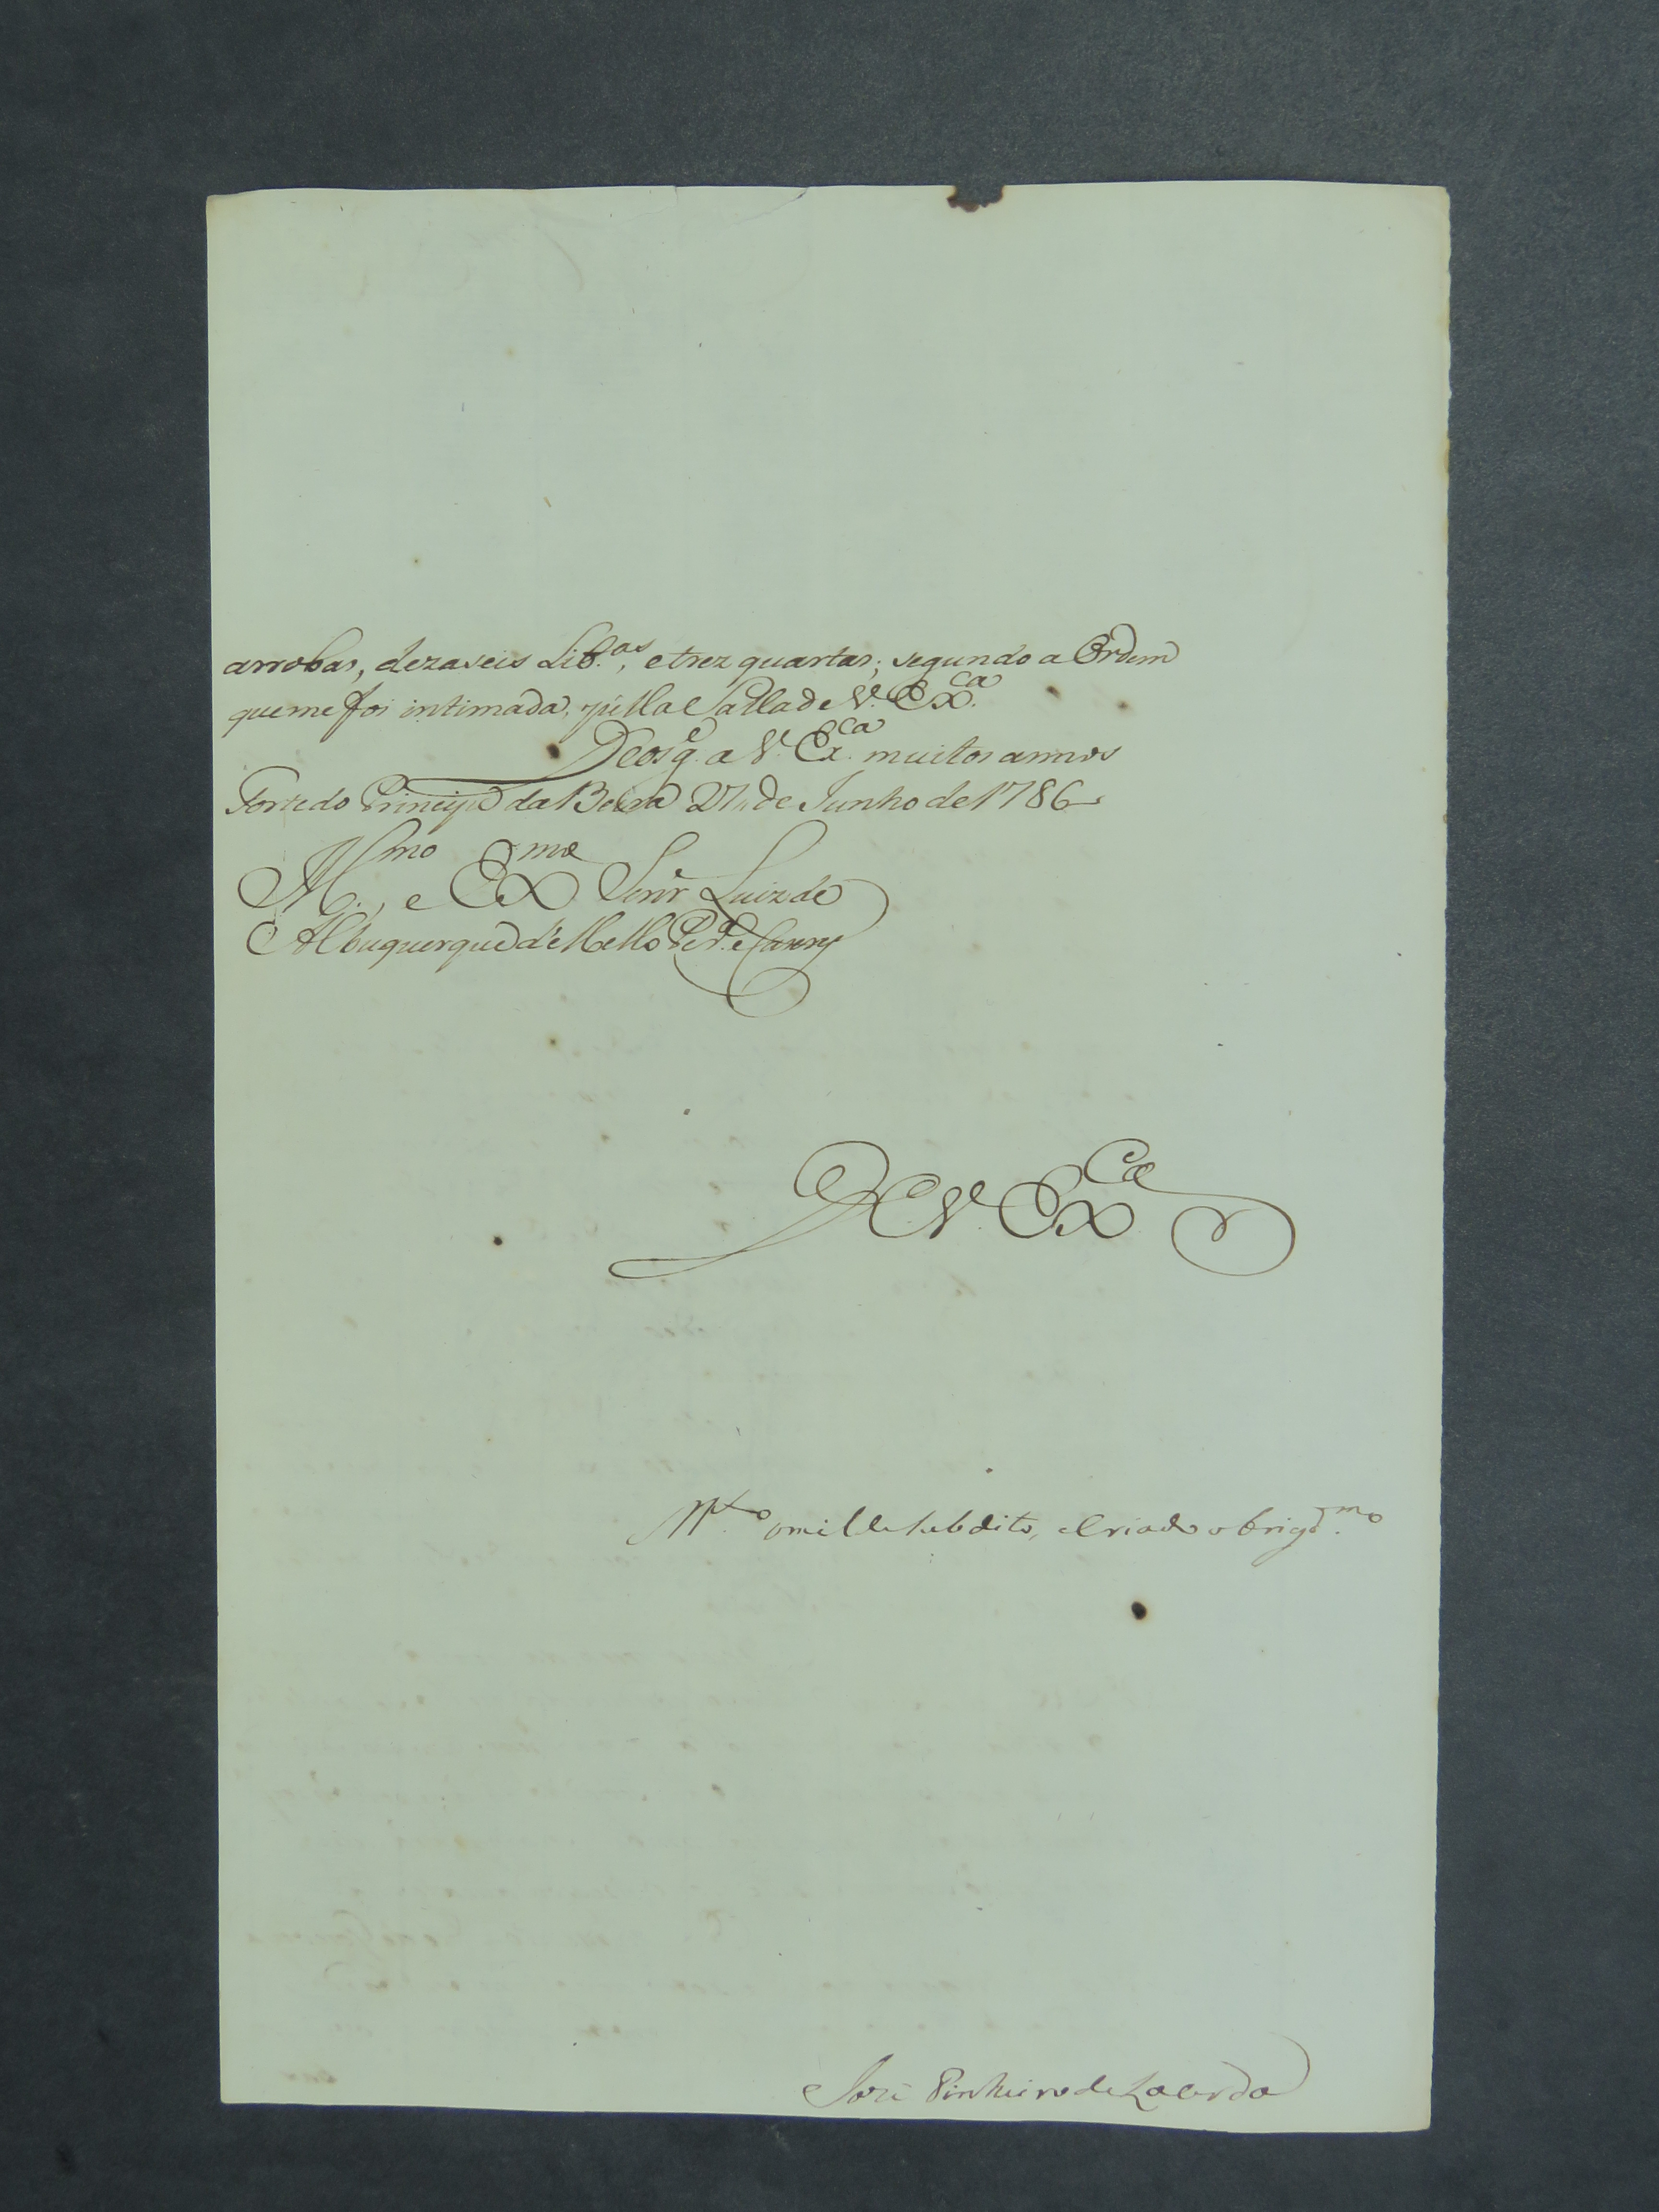 arrobas, dezaseis Lib.as, e trez quartas; segundo a Ordem
que me foi intimada, pella Salla de V. Exca.
Deos g.e a V. Exca. muitos annos
Forte do Principe da Beira 27 de Junho de 1786
Illmo., e Exmo Senr. Luiz de
Albuquerque de Mello Per.a e Cacery
De V. Exca
M.to omilde subdito, e criado obrigd.mo
Joze Pinheiro de Lacerda